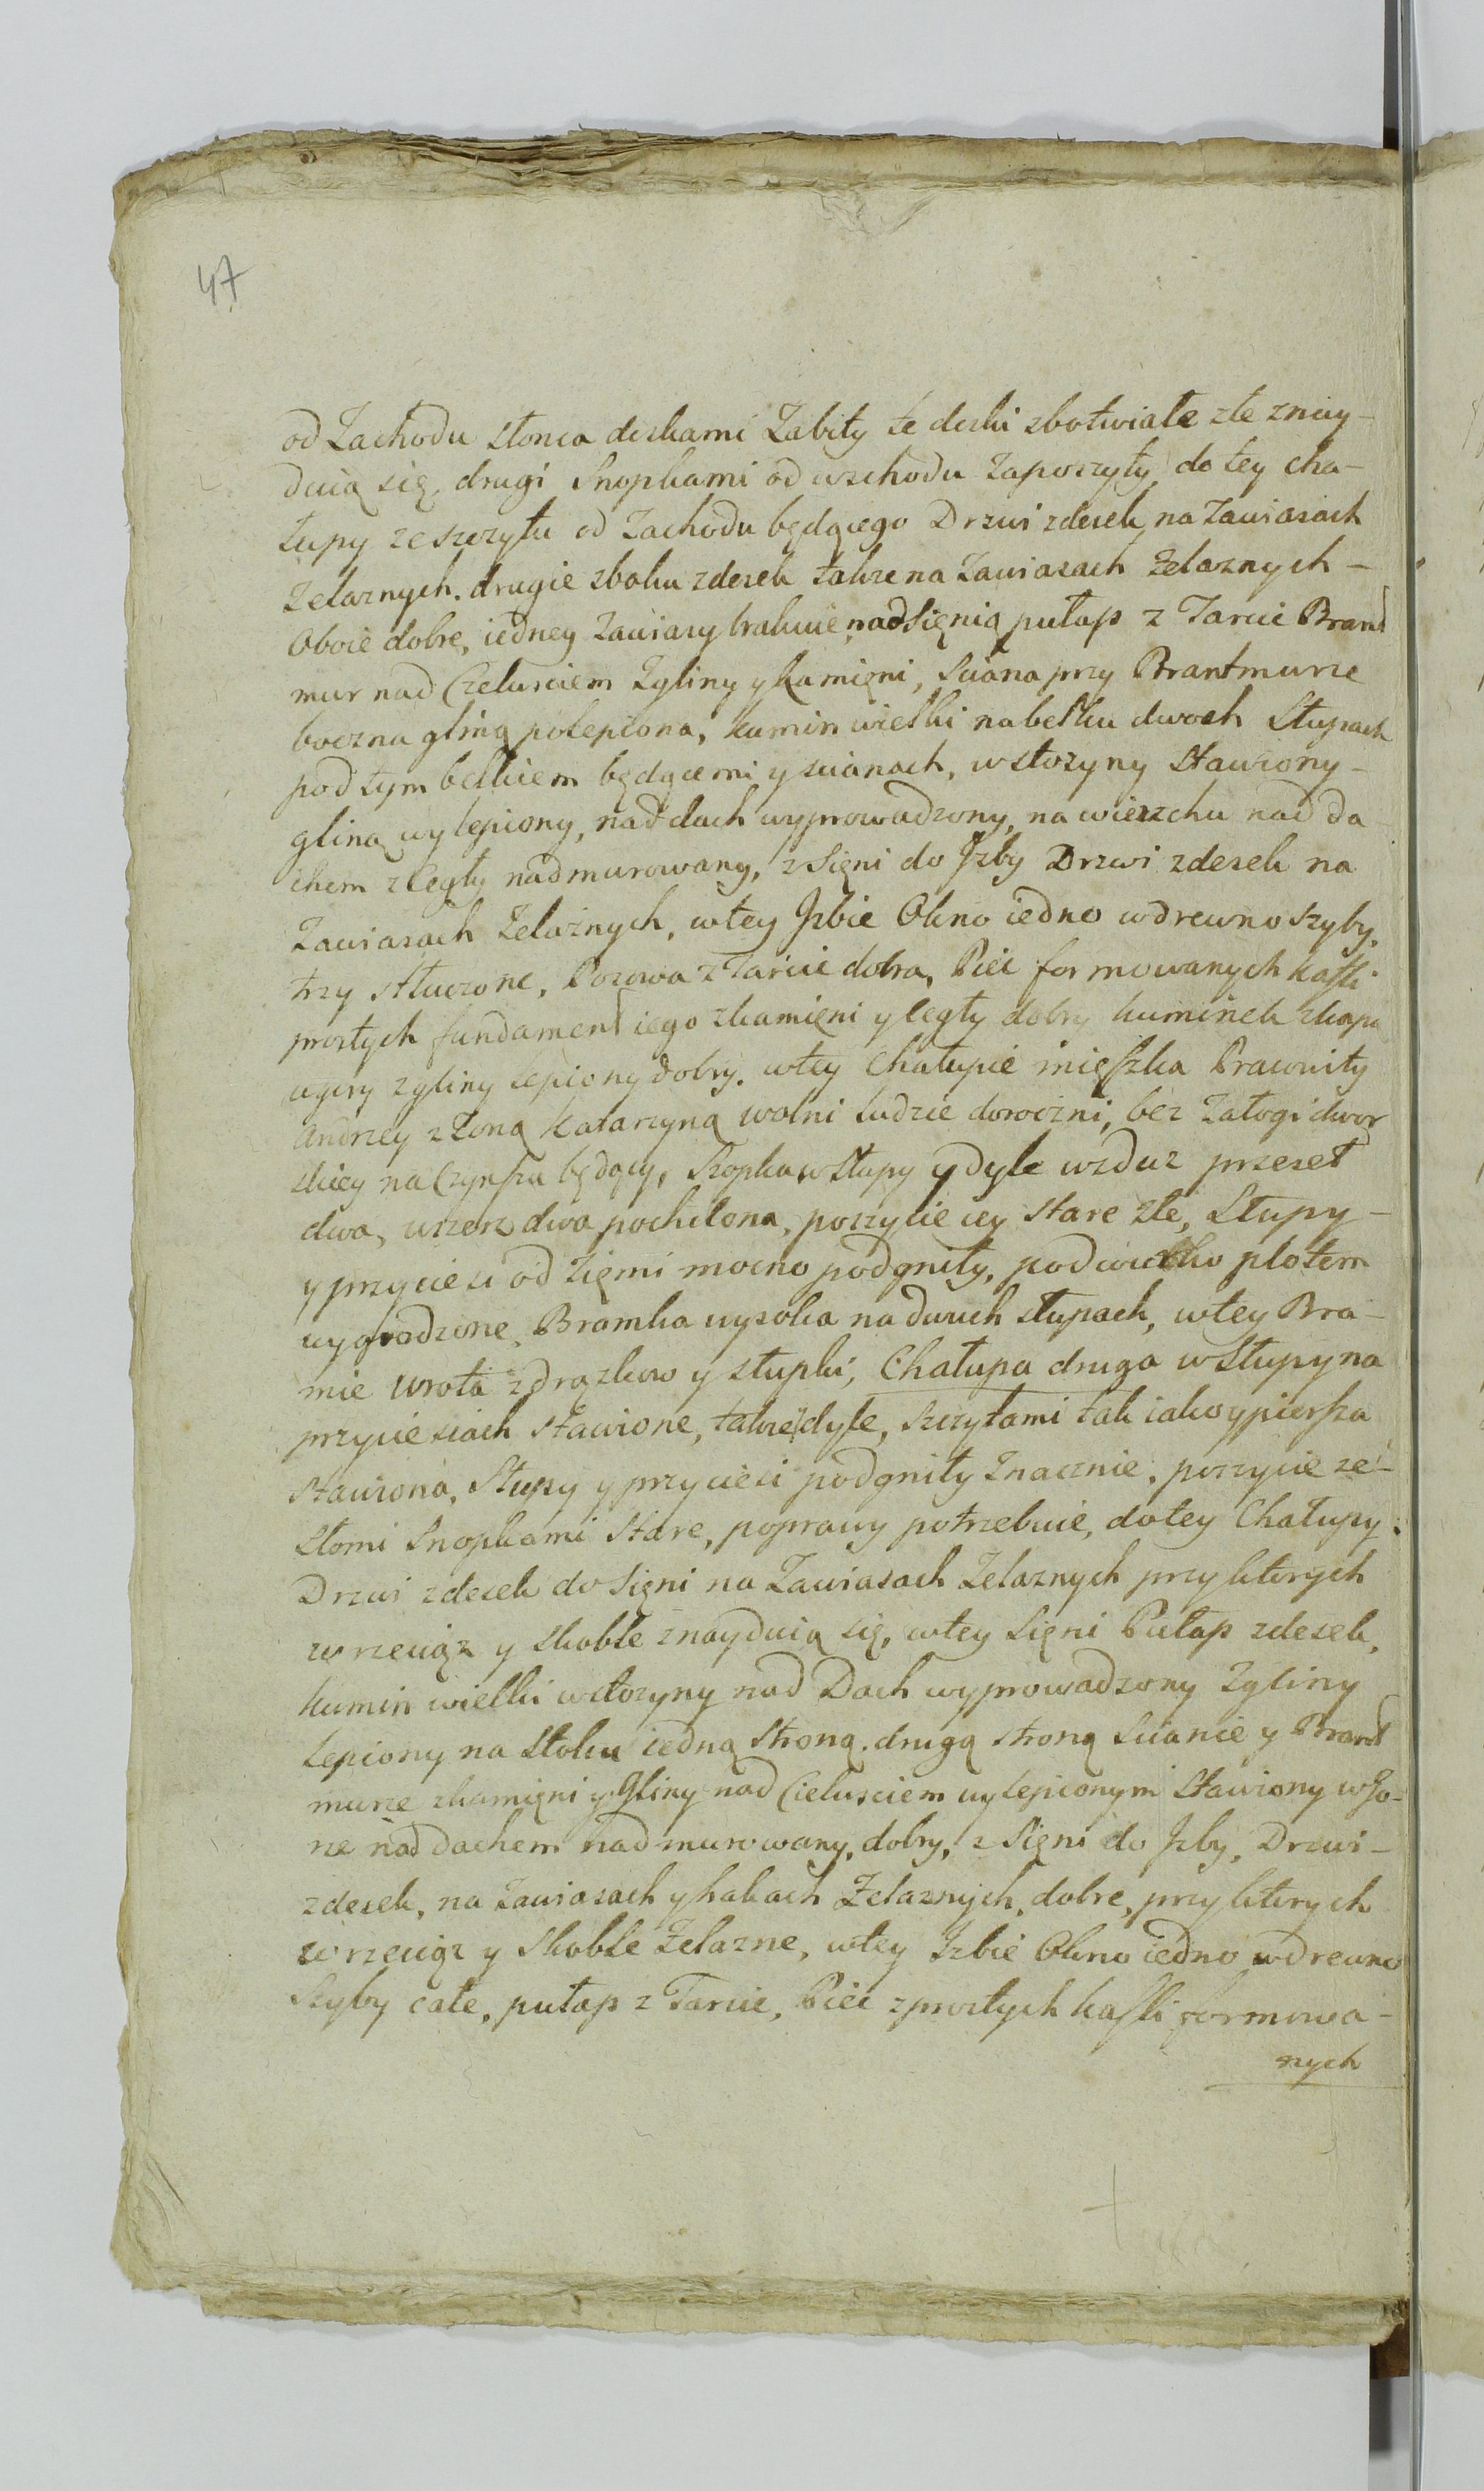 47
od Zachodu słonca deskami Zabity te deski zbotwiałe złe znay-
duią się, drugi Snopkami od wschodu Zaposzyty, do tey cha-
łupy ze szczytu od Zachodu będącego Drzwi zdesek na Zawiasach
Zelaznych. drugie zboku zdesek takze na Zawiasach Zelaznych -
Oboie dobre, iedney Zawiasy brakuie, nad Sięnią pułap z Tarcic Brand
mur nad Czelusciem Zgliny y Kamięni, Sciana przy Brantmurze
boczna gliną polepiona, kumin wielki nabelku dwoch Słupach
pod tym belkiem będącemi y scianach, wstozyny Stawiony -
gliną wylepiony, nad dach wyprowadzony, na wierzchu nad da
chem zCegły nadmurowany, z Sięni do Jzby Drzwi zdesek na
Zawiasach Zelaznych, wtey Jzbie Okno iedno wdrewno szyby,
trzy stłuczone, Pozowa z Tarcic dobra, Piec formowanych kafli
prostych fundament iego zkamięni y Cegły dobry kuminek zkapą
Andrzey z Zoną Katarzyną wolni ludzie doroczni, bez Załogi dwor
skiey na Czynszu będący, Szopka w Słupy y dyle wzduz przeseł
dwa, wszerz dwa pochilona, poszycie iey Stare złe, Słupy -
y przyciesi od Ziemi mocno podgniły, podworko płotem
wygrodzone, Bramka wysoka na dwuch słupach, wtey Bra-
mie wrota zdrązkow y słupki, Chałupa druga w Słupy na
przyciesiach Stawione, takze dyle, Szczytami tak iako y piersza
Stawiona, Słupy y przyciesi podgniły Znacznie, poszycie ze-
Słomi Snopkami Stare, poprawy potrzebuie, dotey Chałupy.
Drzwi zdesek do Sięni na Zawiasach Zelaznych przy ktorych
wrzeciąz y Skoble znayduią się, wtey Sięni Pułap zdesek,
Kumin wielki wstozyny nad Dach wyprowadzony Zgliny
Lepiony na Stołku iedną Stroną. drugą stroną Scianie y Brand
murze zkamięni y Gliny nad Cielusciem wylepionym Stawiony w Go-
rze nad dachem nadmurowany, dobry, z Sięni do Jzby, Drzwi -
zdesek, na Zawiasach y hakach Zelaznych, dobre, przy ktorych
wrzeciąz y Skoble Zelazne, wtey Jzbie Okno iedno wdrewno
Szyby całe, pułap z Tarcic, Piec zprostych kafli formowa-
nych